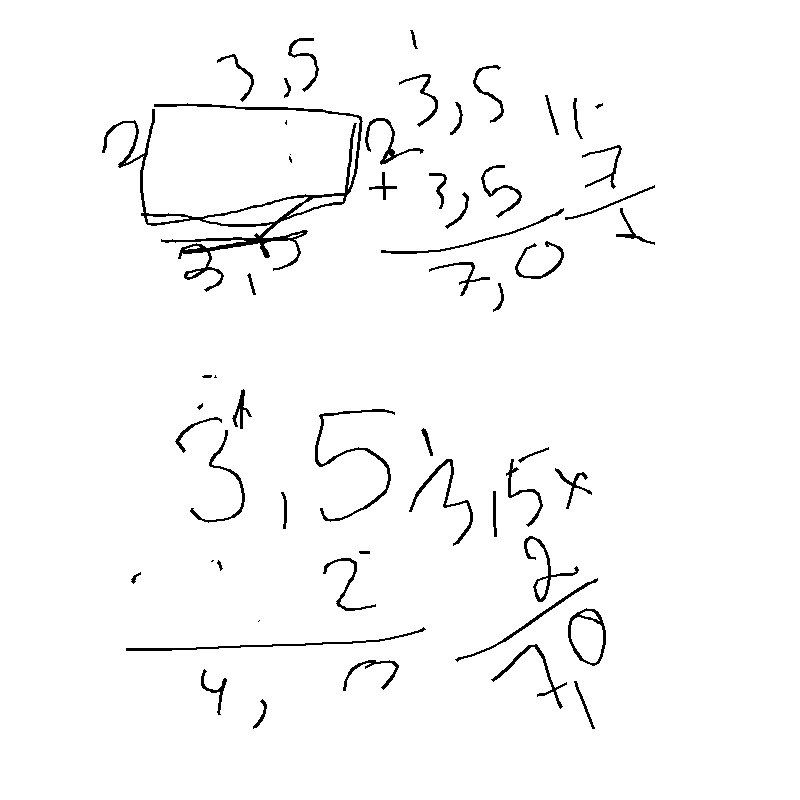 3,5
2 2
3,5
1
3,5
+ 3,5
7,0
11
7
1
3,5
2
4, 0
1
3,5 x
2
7,0